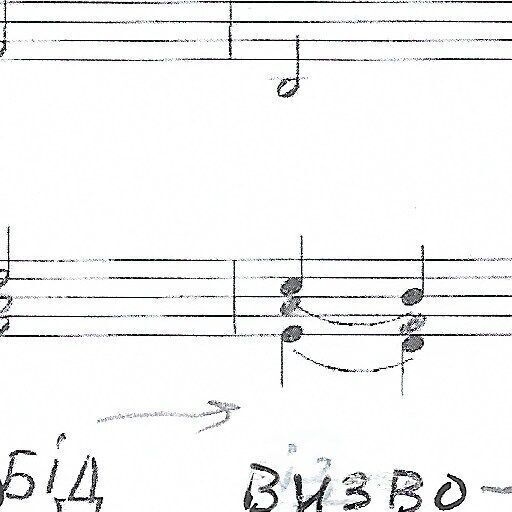 БІД ВИЗВО-